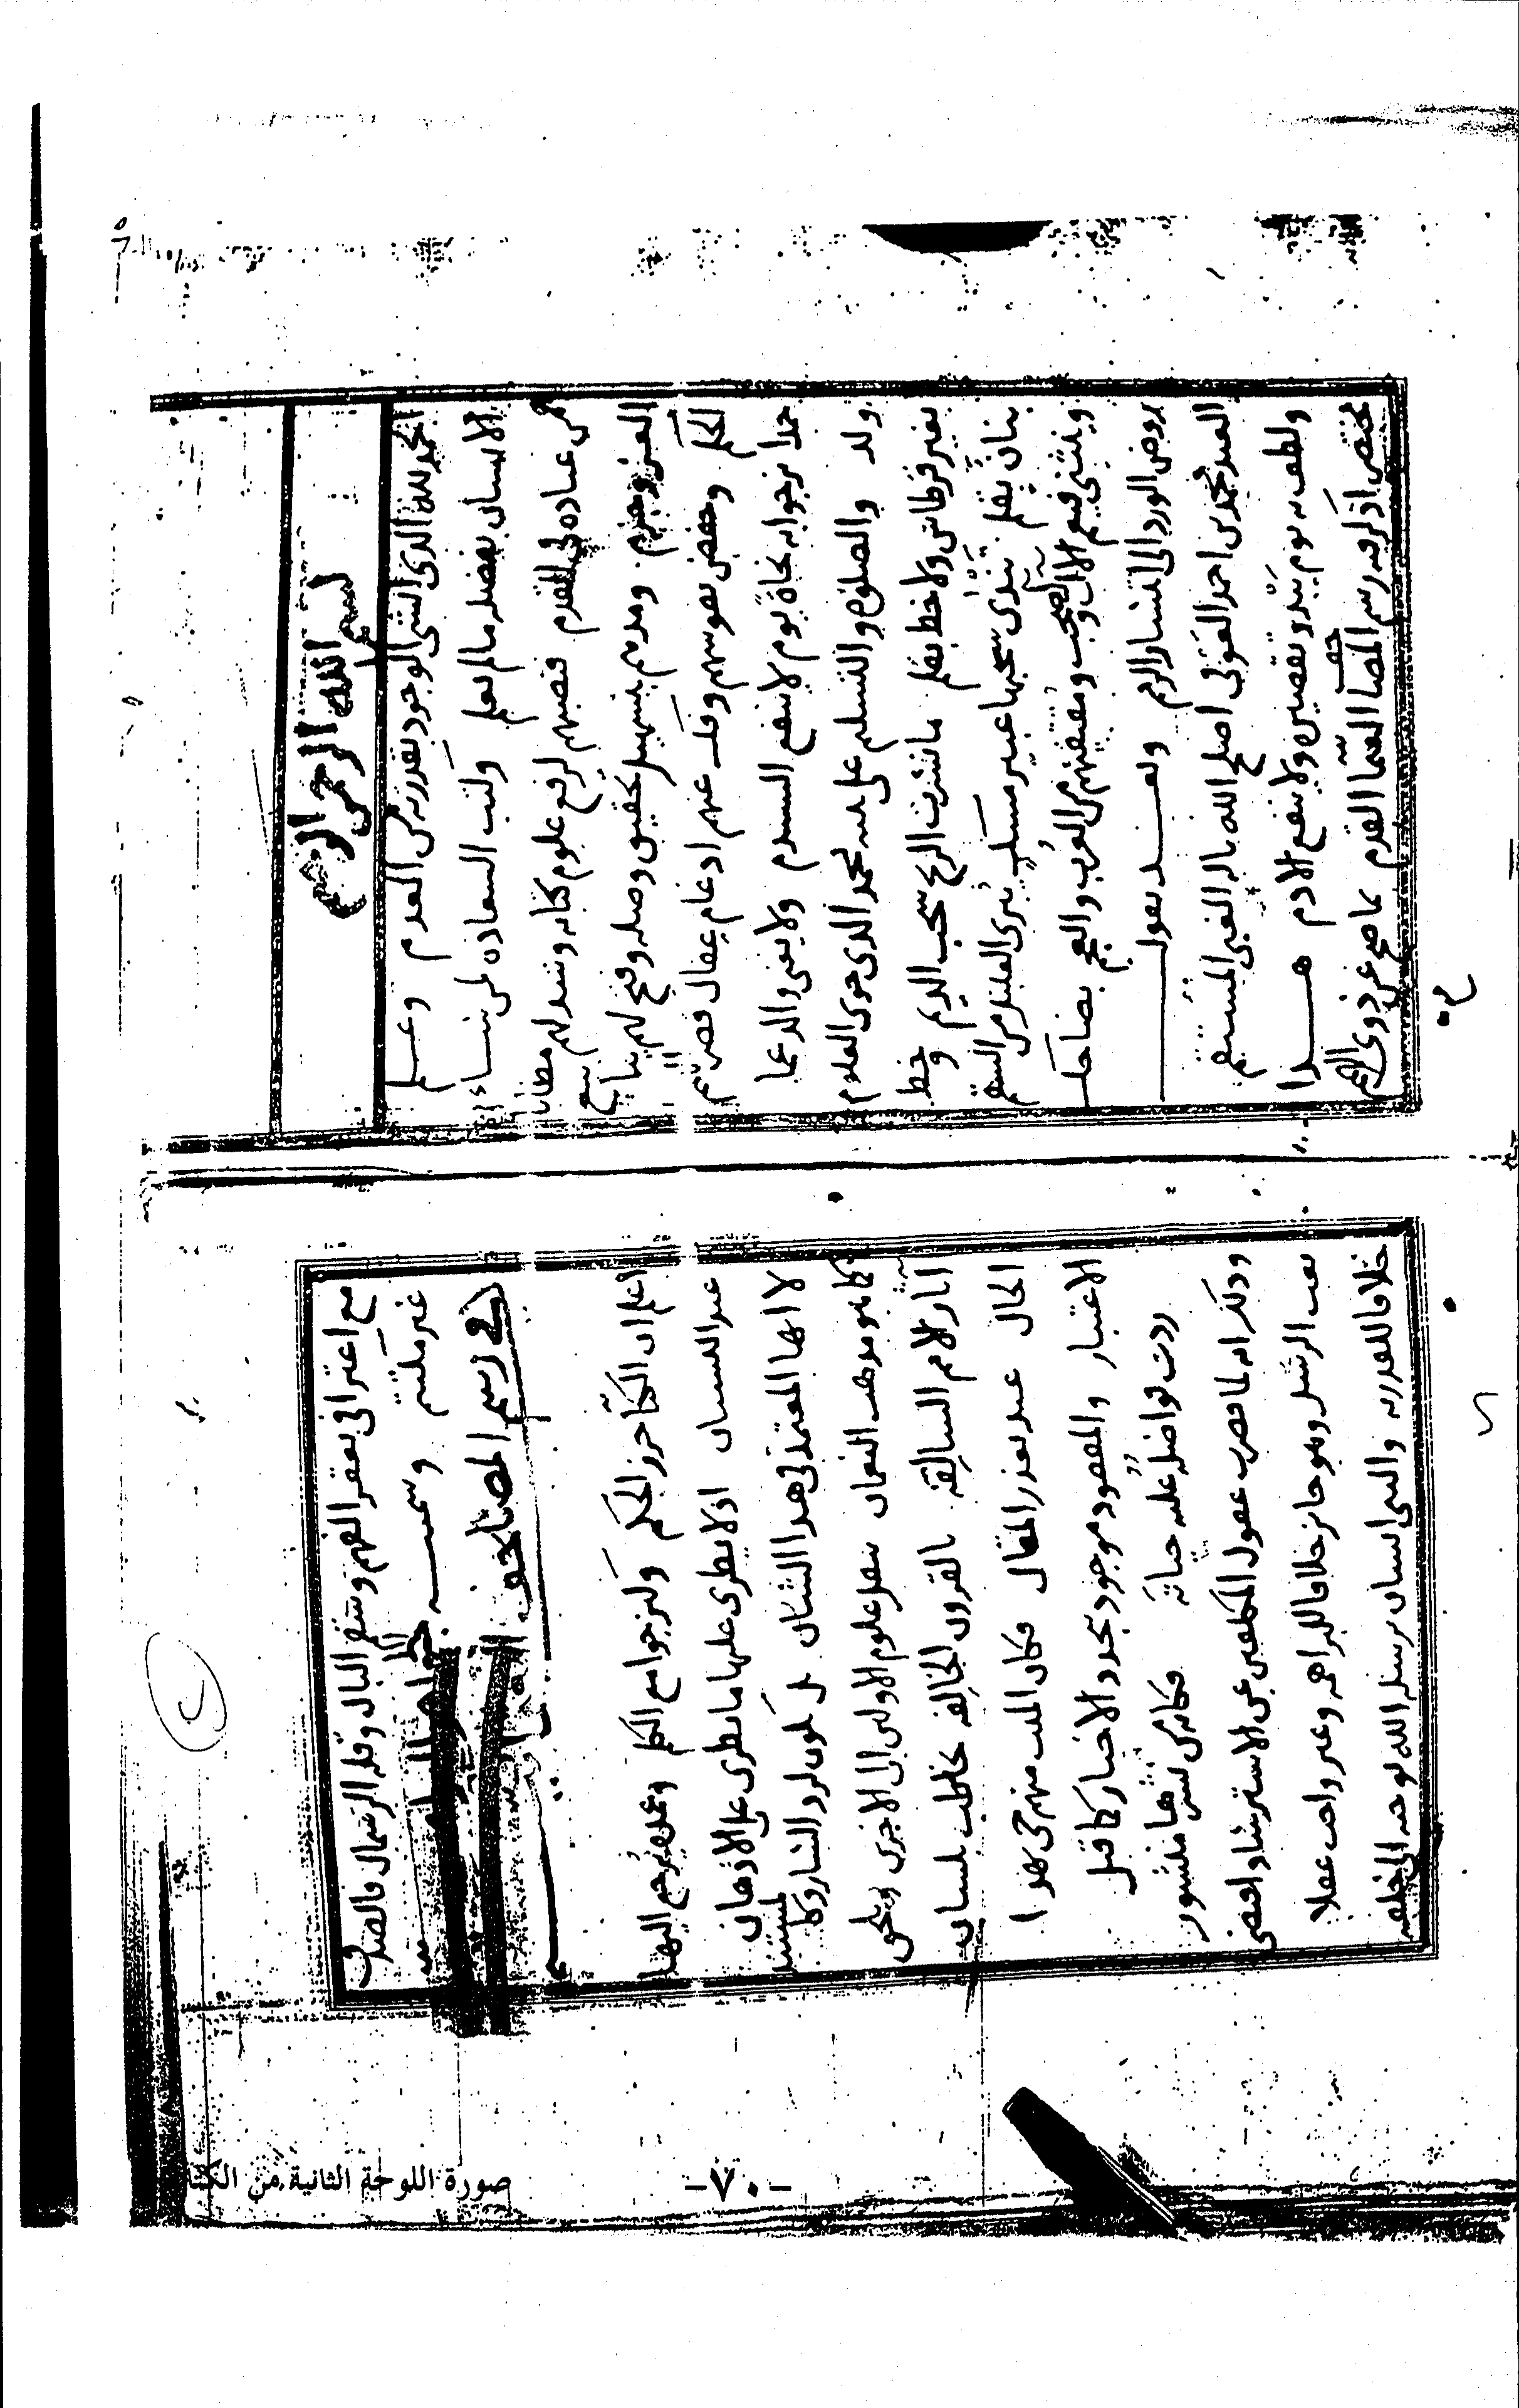 بسم الله الرحمن الرحيم
الحمد لله الذى انشى الوجود بقدرته من العدم وعلم
الانسان بفضله مالم يعلم وكتب السعاده لمن يشاء
من عباده فى القدم فنصبهم لرفع علوم كتابه وشد لهم مطايا
العزم وجزم ومدهم بتسهيل تحقيق وصله وفتح لهم ينابيع
الحكم وخفض نفوسهم وفك عنهم ادغام عقال قصرهم
حمدا نرجوا به نجاة يوم لا ينفع الندم ولا يغنى والد عما
ولد والصلوة والتسليم على محمد الذى حوى العلوم
بغير قرطاس ولا خط بقلم ما نشرت الريح سحب الديم وخط
بنان بقلم تندى سحبها عبير مسك يبرى العليل من السقم
وينثنى فيعم الال والصحب ومقتفيهم من العرب والعجم بضاحك
روض الورد الى انتشار الرمم وبعد يقول
العبد محمد بن احمد العوفى اصلح الله باله الغبى المستقيم
ولطف به يوم يبدو تقصيره ولا ينفع الادم هذا
مختصر اذكر فيه رسم المصاحف العثما القدم مما صح عن ذوى
مع اعترافى بفقر الفهم وشغر البال وقله الرسمال فالصدر
غير ملتئم وسميته الجواهر
فى رسم المصاحف
اعلم ان الكتا حرز الحكم وكنز جوامع الكلم وعمدة يرجع اليها
عند اللسان اذ لا يطرى عليها ما يطرى على الاذهان
لا انها المعتمد فى هذا الشان بل تكون لرد الشارد كالمستند
كما هو مذهب النعمان تنقل علوم الاولى الى الاخرى وتلحق
اثار الامم السالفه بالقرون الخالفه تخاطب بلسان
الحال عند تعذر المقال فكان الميت منهم حى هذا
الاعتبار والمفقود موجود بتجدد الاخبار كما قيل
ردت فواضله عليه حياته فكانه من نشرها منشور
وذلك انه لما قصرت عقول المكلفين عن الاسترشاد اقتضى
بعث الرسل وهو جائز خلافا للبراهمه وغير واجب عقلا
خلافا للقدريه والنبى انسان يرسله الله بوحيه الى خلقه
صورة اللوحة الثانية من الكتا
-٧٠-